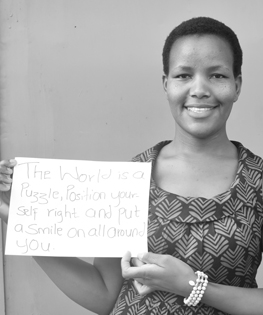 The World is a
Puzzle, Position your
Self right and put
a Smile on all around
you.